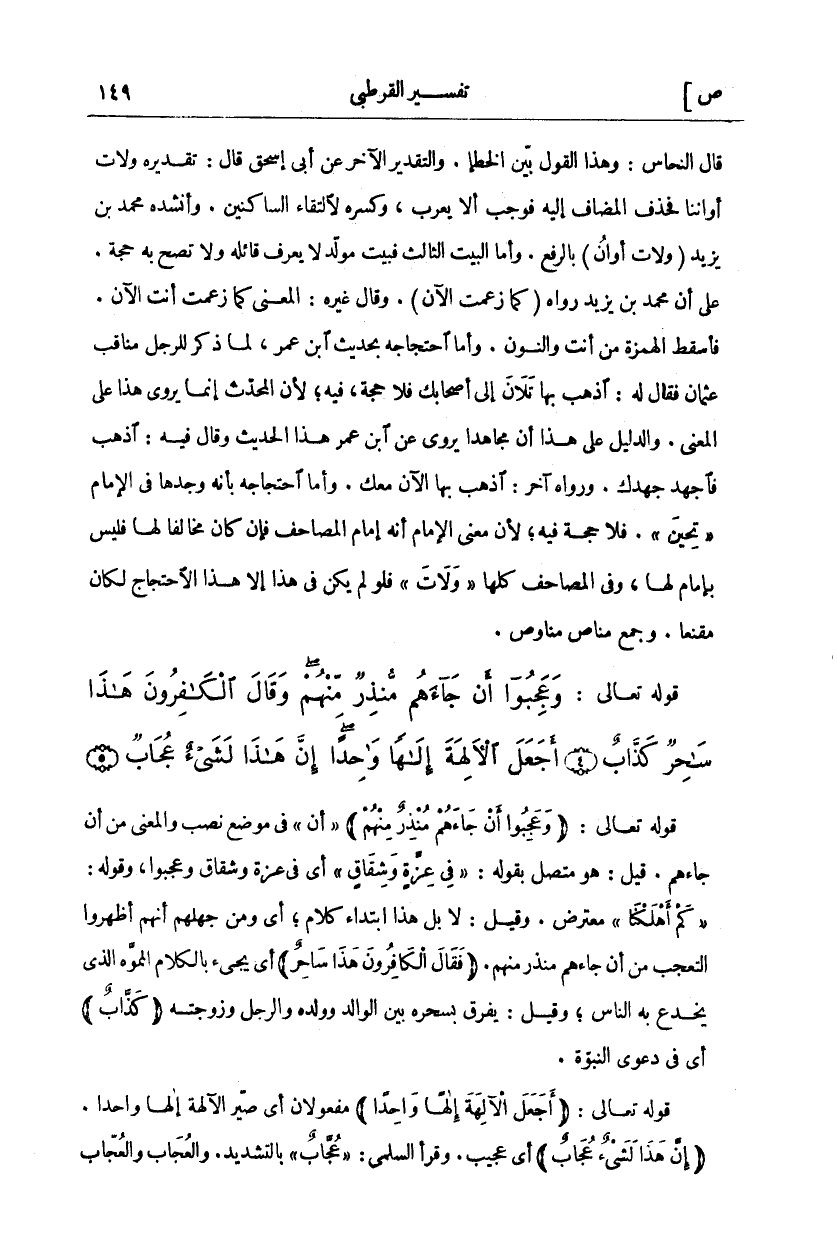 ص ] تفسير القرطبي ١٤٩
قال النحاس : وهذا القول بيّن الخطإ . والتقدير الآخر عن أبى إسحق قال : تقديره ولات
أواننا فحذف المضاف إليه فوجب ألا يعرب ، وكسره لألتقاء الساكنين . وأنشده محمد بن
يزيد ( ولات أوانُ ) بالرفع . وأما البيت الثالث فبيت مولّد لا يعرف قائله ولا تصح به حجة .
على أن محمد بن يزيد رواه ( كما زعمت الآن ) . وقال غيره : المعنى كما زعمت أنت الآن .
فأسقط الهمزة من أنت والنون . وأما ٱحتجاجه بحديث ٱبن عمر ، لما ذكر للرجل مناقب
عثمان فقال له : ٱذهب بها تَلَانَ إلى أصحابك فلا حجة ، فيه ؛ لأن المحدّث إنما يروى هذا على
المعنى . والدليل على هذا أن مجاهدا يروى عن ٱبن عمر هذا الحديث وقال فيه : ٱذهب
فٱجهد جهدك . ورواه آخر : ٱذهب بها الآن معك . وأما ٱحتجاجه بأنه وجدها فى الإمام
« تَحِينَ » . فلا حجة فيه ؛ لأن معنى الإمام أنه إمام المصاحف فإن كان مخالفا لها فليس
بإمام لها ، وفى المصاحف كلها « وَلَاتَ » فلو لم يكن فى هذا إلا هذا الٱحتجاج لكان
مقنعا . وجمع مناص مناوص .
قوله تعالى : وَعَجِبُوٓا۟ أَن جَآءَهُم مُّنذِرٌ مِّنْهُمْ ۖ وَقَالَ ٱلْكَـٰفِرُونَ هَـٰذَا
سَـٰحِرٌ كَذَّابٌ ﴿٤﴾ أَجَعَلَ ٱلْآلِهَةَ إِلَـٰهًا وَٰحِدًا ۖ إِنَّ هَـٰذَا لَشَىْءٌ عُجَابٌ ﴿٥﴾
قوله تعالى : ﴿ وَعَجِبُوا أَنْ جَاءَهُمْ مُنْذِرٌ مِنْهُمْ ﴾ « أن » فى موضع نصب والمعنى من أن
جاءهم . قيل : هو متصل بقوله : « فِى عِزَّةٍ وَشِقَاقٍ » أى فى عزة وشقاق وعجبوا ، وقوله :
« كَمْ أَهْلَكْنَا » معترض . وقيل : لا بل هذا ابتداء كلام ؛ أى ومن جهلهم أنهم أظهروا
التعجب من أن جاءهم منذر منهم . ﴿ فَقَالَ الْكَافِرُونَ هَذَا سَاحِرٌ ﴾ أى يجىء بالكلام المموّه الذى
يخدع به الناس ؛ وقيل : يفرق بسحره بين الوالد وولده والرجل وزوجته ﴿ كَذَّابٌ ﴾
أى فى دعوى النبوّة .
قوله تعالى : ﴿ أَجَعَلَ الْآلِهَةَ إِلَهًا وَاحِدًا ﴾ مفعولان أى صيّر الآلهة إلها واحدا .
﴿ إِنَّ هَذَا لَشَىْءٌ عُجَابٌ ﴾ أى عجيب . وقرأ السلمى : « عُجَّابٌ » بالتشديد . والعُجَاب والعُجّاب